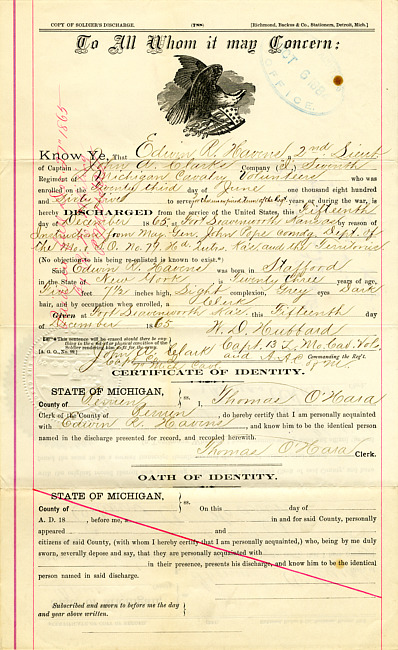 COPY OF SOLDIER'S DISCHARGE. [Richmond, Backus & Co., Stationers, Detroit, Mich.]
To All Whom it may Concern:
Know Ye, That Edwin R. Havens a 2nd Lieut
of Captain John A. Clarks Company (I,) Seventh
Regiment of Michigan Cavalry Volunteers who was
enrolled on the Twenty third day of June one thousand eight hundred
and to serve years or during the war, is
hereby DISCHARGED from the service of the United States, this Fifteenth
day of December 1865, at Fort Leavenworth Kansas by reason of
Instructions from Maj. Gen. John Pope comdg. Dept. of
the Mo.
(No objection to his being re-enlisted is known to exist.*)
Said Edwin R. Havens was born in Stafford
in the State of New York is Twenty three years of age,
Five feet 7½ inches high, Light complexion, Grey eyes Dark
hair, and by occupation when enrolled, a Clerk
Given at Fort Leavenworth Kas. this Fifteenth day of
December 1865 W. D. Hubbard
*This sentence will be erased should there be any-
thing in the conduct or physical condition of the
soldier rendering him unfit for the army.
[A. G. O., No. 99.] John A. Clark Capt. 13 Mo. Cav. Vols.
and A.A.C. of M. Commanding the Reg't.
CERTIFICATE OF IDENTITY.
STATE OF MICHIGAN,
County of Berrien ss. I, Thomas O'Hara
Clerk of the County of Berrien, do hereby certify that I am personally acquainted
with Edwin R. Havens, and know him to be the identical person
named in the discharge presented for record, and recorded herewith.
Thomas O'Hara Clerk.
OATH OF IDENTITY.
STATE OF MICHIGAN,
County of ss. On this day of
A. D. 18 , before me, a in and for said County, personally
appeared and
citizens of said County, (with whom I hereby certify that I am personally acquainted,) who, being by me duly
sworn, severally depose and say, that they are personally acquainted with
in their presence, presents his discharge, and know him to be the identical
person named in said discharge.
Subscribed and sworn to before me the day
and year above written.